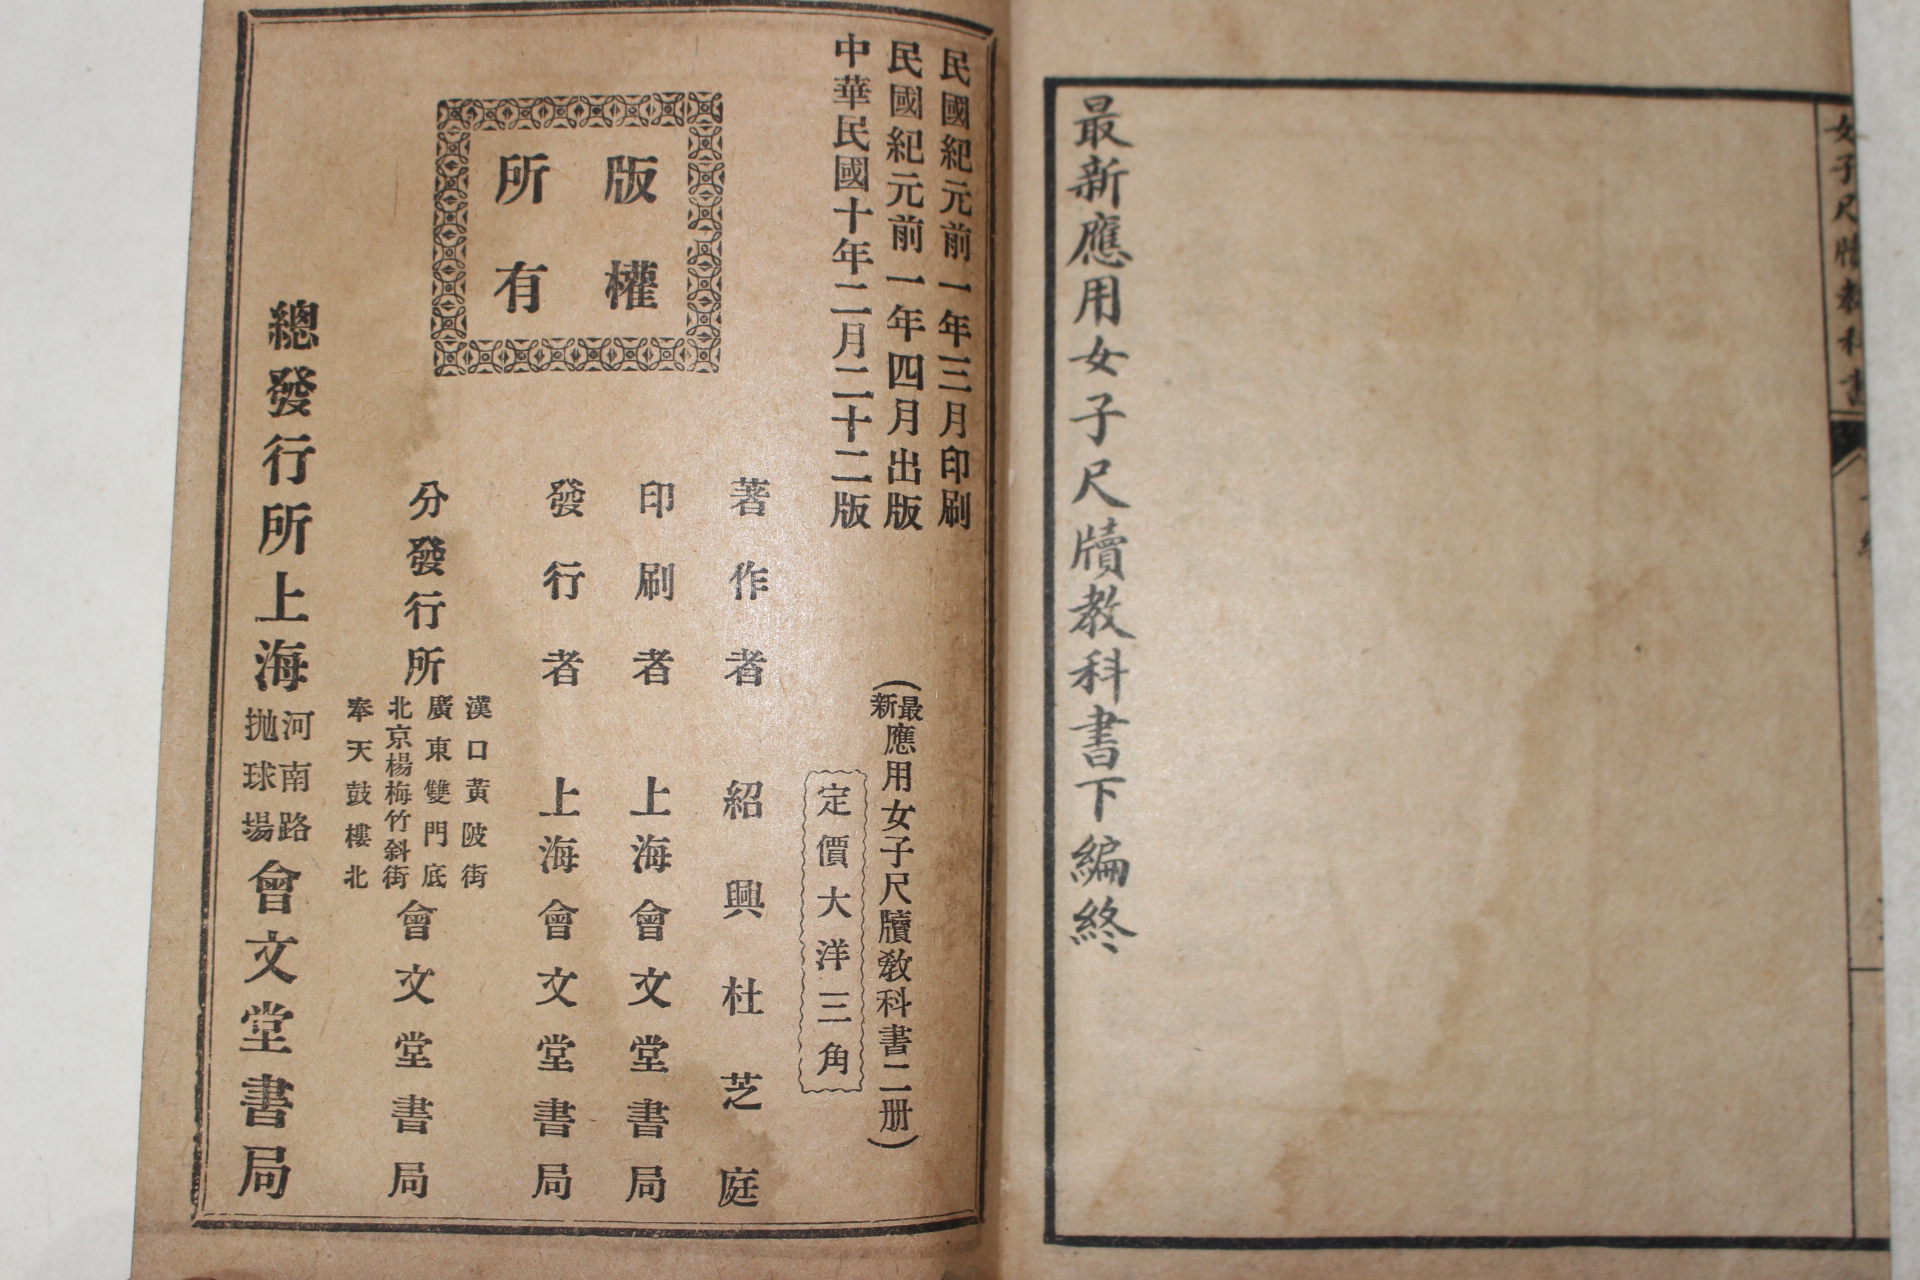 女子尺牘教科書
最新應用女子尺牘教科書下編終
民國紀元前一年三月印刷
民國紀元前一年四月出版
中華民國十年二月二十二版
(最新應用女子尺牘教科書二册)
定價大洋三角
版權
所有
著作者 紹興杜芝庭
印刷者 上海會文堂書局
發行者 上海會文堂書局
分發行所
漢口黃陂街
廣東雙門底
北京楊梅竹斜街
奉天鼓樓北
會文堂書局
總發行所上海
河南路
拋球場
會文堂書局